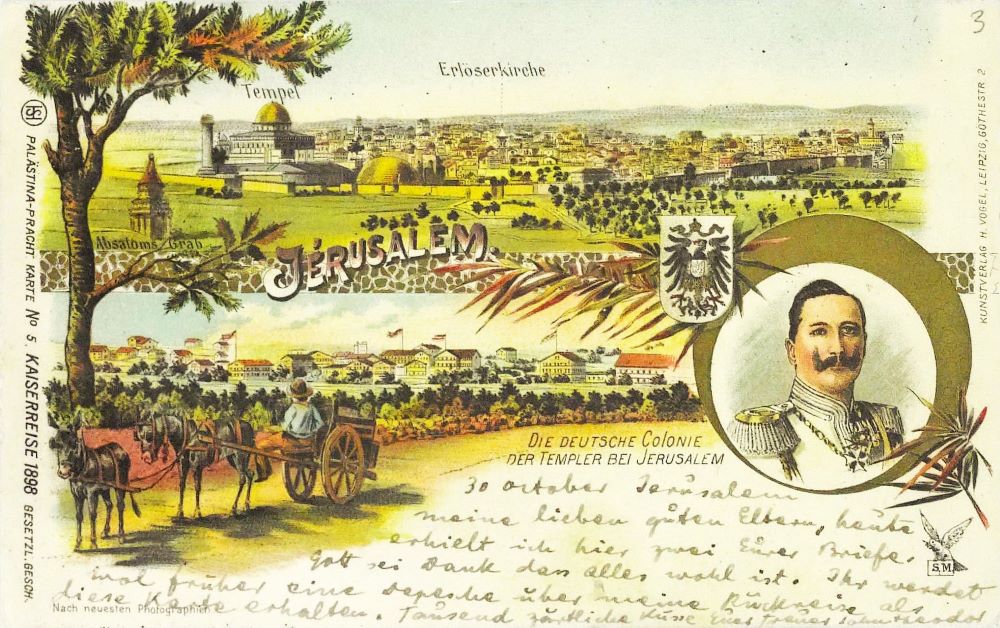 3
Erlöserkirche
Tempel
Absaloms Grab
JÉRUSALEM.
DIE DEUTSCHE COLONIE
DER TEMPLER BEI JERUSALEM
PALÄSTINA-PRACHT KARTE No 5. KAISERREISE 1898 GESETZL. GESCH.
KUNSTVERLAG H. VOGEL, LEIPZIG, GÖTHESTR 2
30 october Jerusalem
meine lieben guten Eltern, heute
erhielt ich hier zwei Eurer Briefe.
Gott sei Dank dass alles wohl ist. Ihr werdet
wol früher eine depesche über meine Rückreise als
diese Karte erhalten. Tausend zärtliche Küsse Euer treuer sohn theodor
S.M.
Nach neuesten Photographien